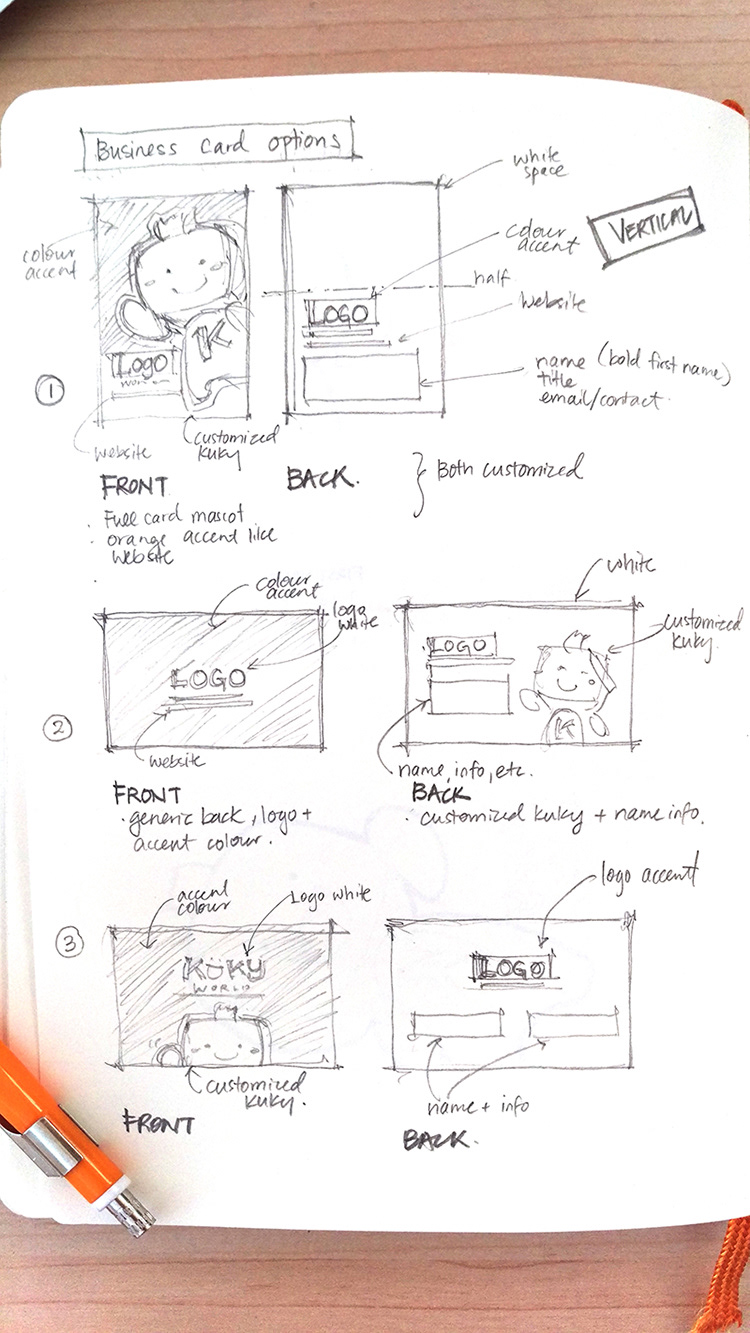 Business Card options
white
space
colour
accent
colour
accent
VERTICAL
half
LOGO
website
K
Logo
WORLD
name (bold first name)
title
email/contact.
1
website
customized
kuky
FRONT
BACK.
Both customized
· Full card mascot
· orange accent like
website
colour
accent
logo
white
white
customized
kuky
LOGO
LOGO
K
2
website
name, info, etc.
FRONT
BACK
· generic back, logo +
accent colour.
· customized kuky + name info.
accent
colour
Logo white
logo accent
3
KÜKY
WORLD
LOGO
customized
kuky.
name + info
FRONT
BACK.